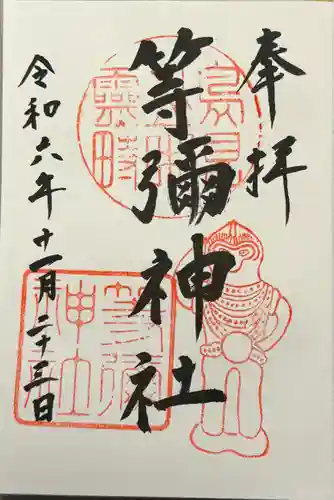 奉拝
等彌神社
令和六年十一月二十三日
鳥見
霊畤
等彌
神社